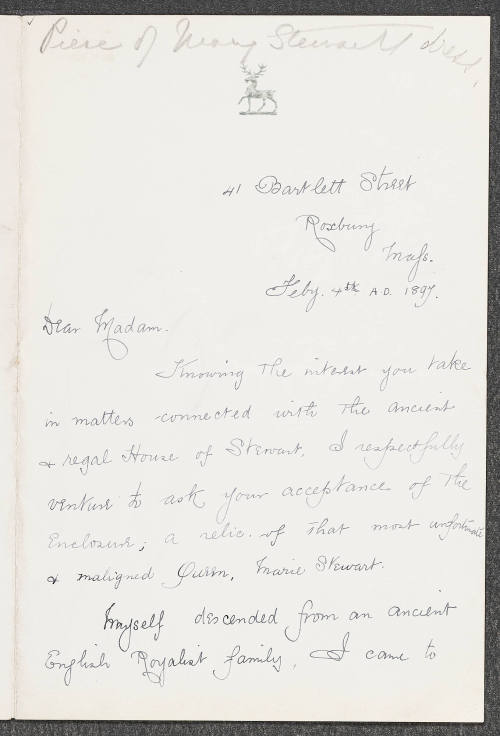 Piece of Mary Stewart's dress.
41 Bartlett Street
Roxbury
Mass.
Feby. 4th A.D. 1897.
Dear Madam.
Knowing the interest you take
in matters connected with the ancient
& regal House of Stewart, I respectfully
venture to ask your acceptance of the
enclosure; a relic of that most unfortunate
& maligned Queen, Marie Stewart.
Myself descended from an ancient
English Royalist family, I came to